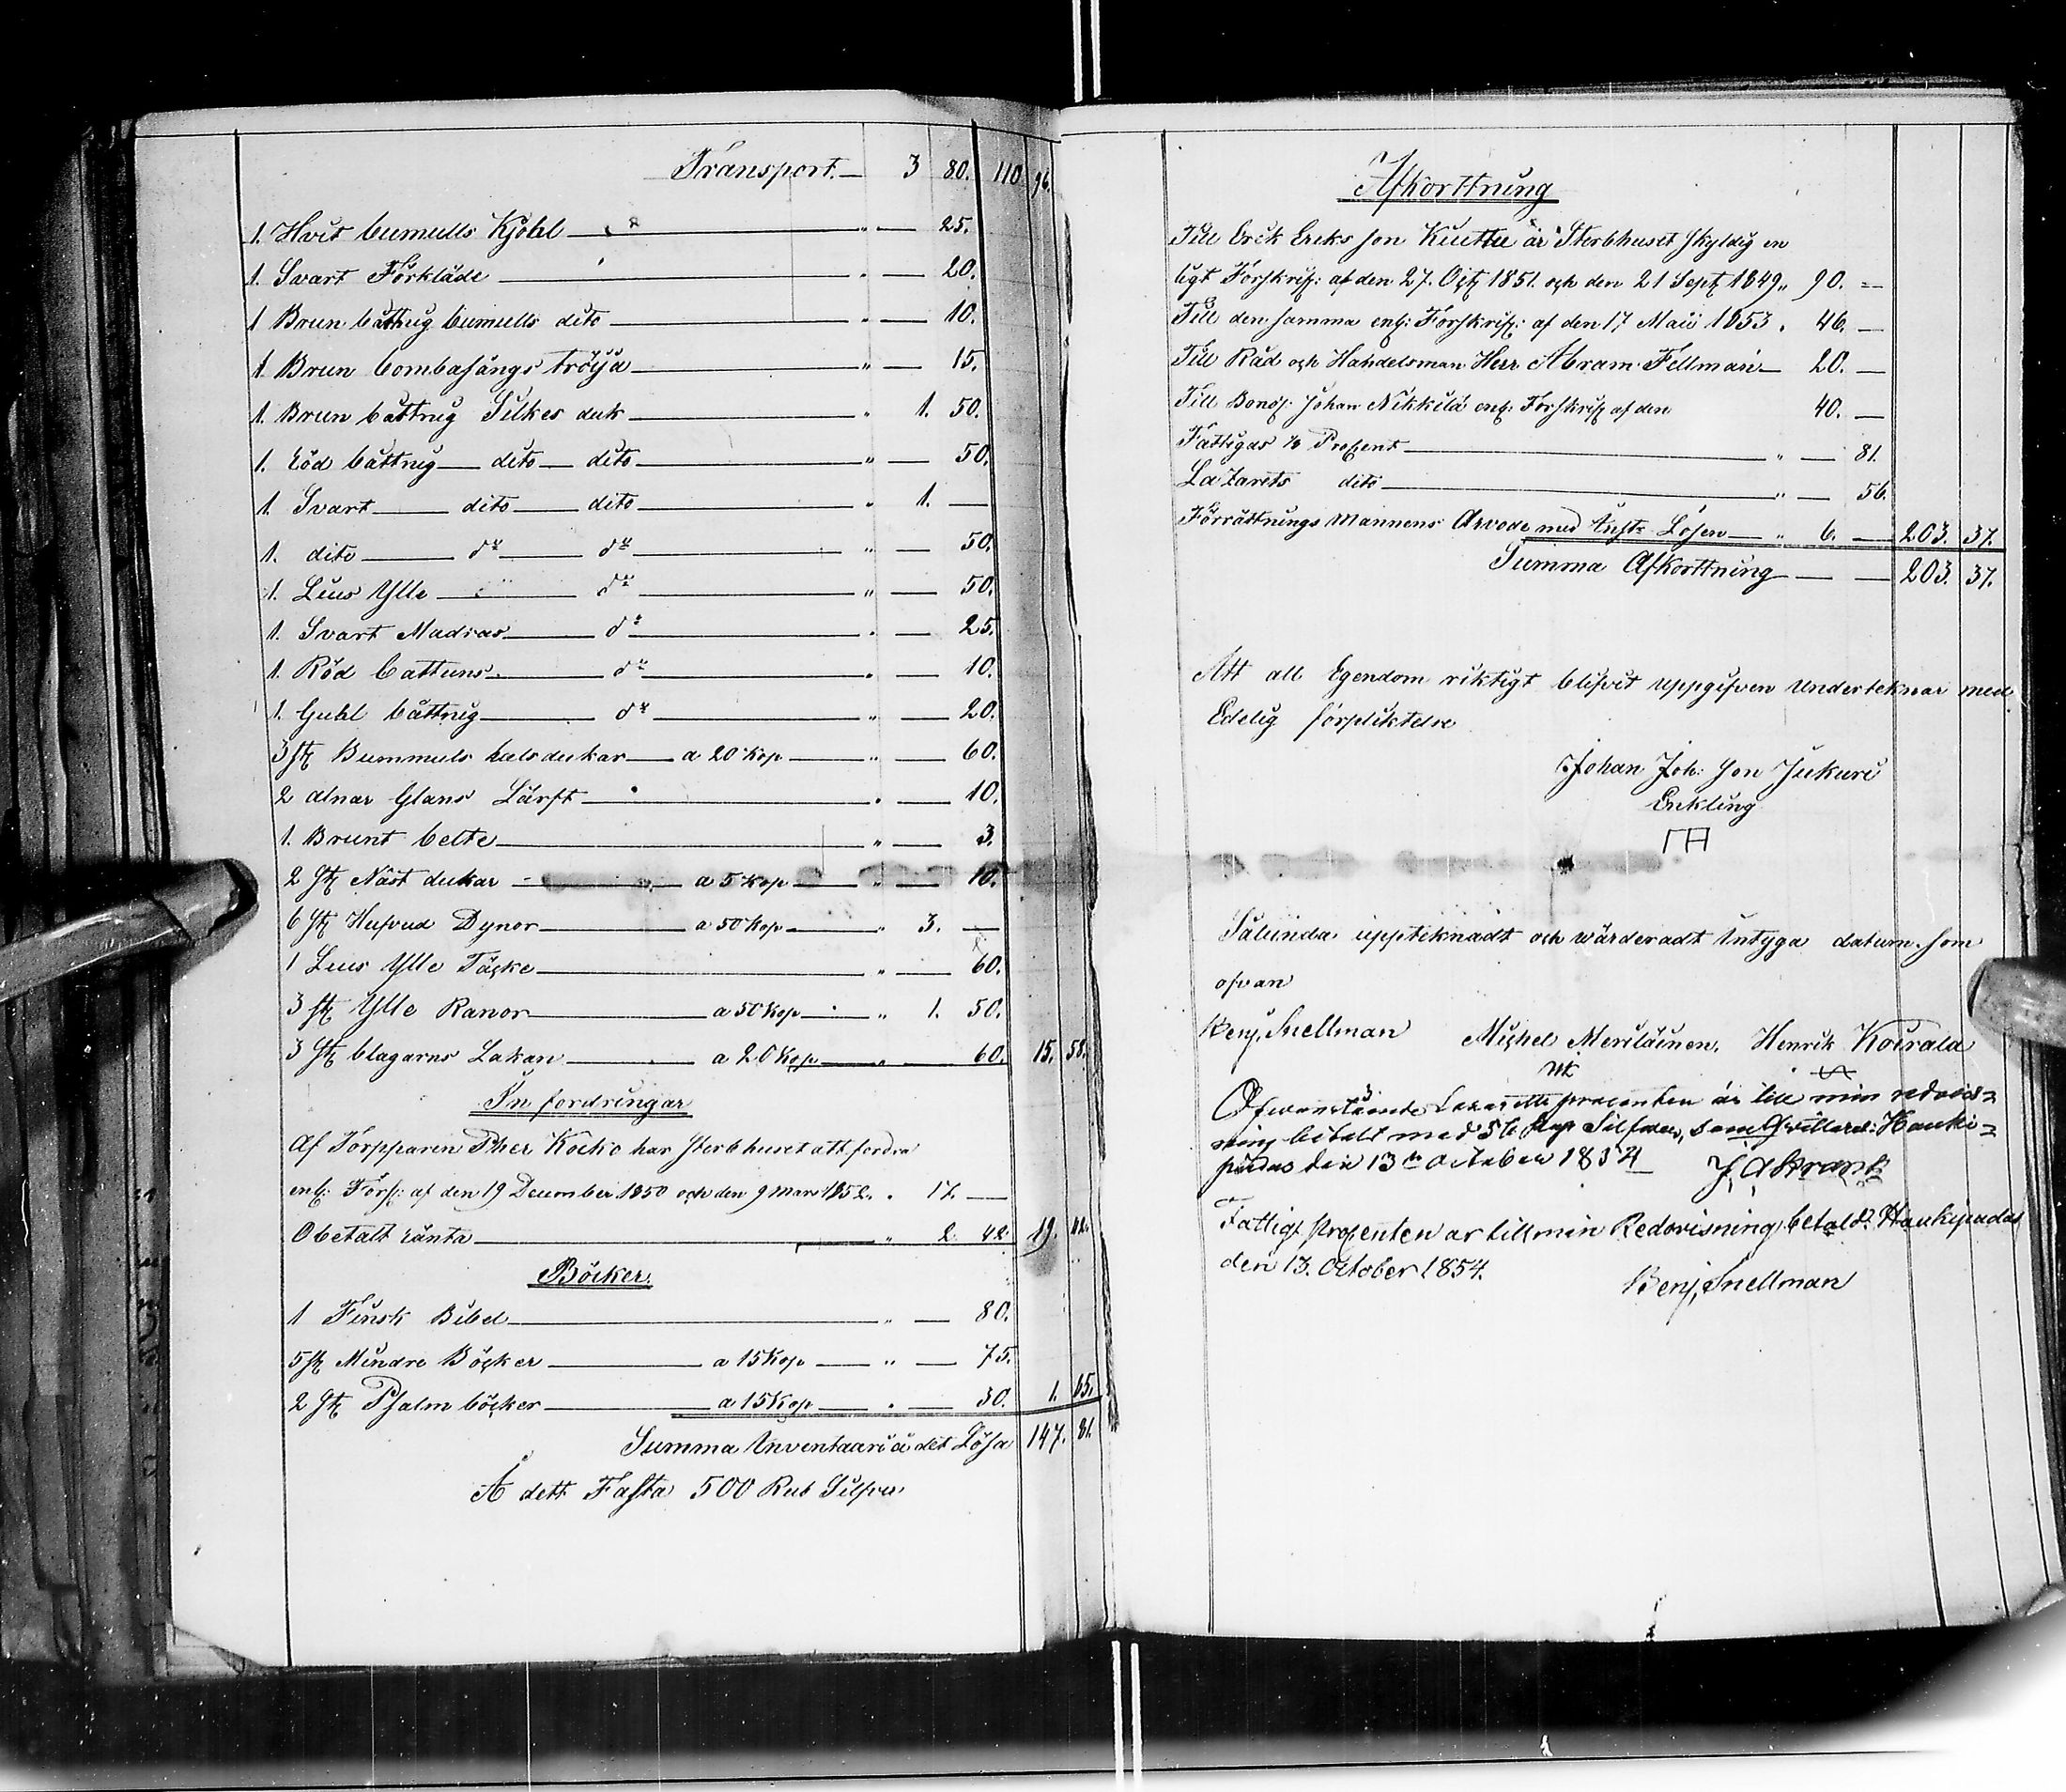 Transport. — 3 80. 110 96.
1. Hvit bumulls Kjohl — " — 25.
1. Svart Förkläde — " — 20.
1 Brun båttrig bumulls dito — " — 10.
1. Brun bombasångs tröija — " — 15.
1. Brun båttrig Silkes duk — " 1. 50.
1. Röd båttrig — dito — dito — " — 50.
1. Svart — dito — dito — " 1. —
1. dito — do — do — " — 50.
1. Ljus Ylle — do — " — 50.
1. Svart Madras — do — " — 25.
1. Röd Cattuns — do — " — 10.
1. Guhl båttrig — do — " — 20.
3 st Bummuls halsdukar — a 20 kop — " — 60.
2 alnar Glans Lärft — " — 10.
1. Brunt belte — " — 3.
2 st Näst dukar — a 5 kop — " — 10.
6 st Hufvud Dynor — a 50 kop — " 3. —
1 Ljus Ylle Täcke — " — 60.
3 st Ylle Ranor — a 50 kop — " 1. 50.
3 st blagarns Lakan — a 20 kop — " — 60. 15. 58.
In fordringar
Af Torpparen Pher Kocko har sterbhuset att fordra
enl: Förs: af den 19 December 1850 och den 9 Mars 1852. " 17. —
Obetalt ränta — " 2. 42. 19. 42.
Böcker.
1 Finsk Bibel — " — 80.
5 st Mindre Böcker — a 15 Kop — " — 75.
2 st Psalm böcker — a 15 Kop — " — 30. 1. 85.
Summa Inventaari å det Lösa 147. 81.
Å dett Fasta 500 Rub Silfver
Afkorttning
Till Erik Eriks son Kuttu är Sterbhuset skyldig en
ligt Förskrif: af den 27. Oct 1851. och den 21 Sept 1849 " 90. —
Till den samma enl: Förskrif: af den 17 Maii 1853. 46. —
Till Råd och Handelsman Herr Abram Fellman — 20. —
Till Bonds: Johan Nikkilä enl: Förskrif af den 40. —
Fattigas 1/8 Procent — " — 81.
Lazarets dito — " — 56.
Förrättnings Mannens Arvode med Lösen — " 6. — 203. 37.
Summa Afkorttning — — 203. 37.
Att all Egendom riktigt blifvit uppgifven Underteknar med
Edelig förpliktelse
Johan Joh: son Jukuri
Enkling
Sålunda uppteknadt och wärderadt Intyga datum som
ofvan
Benj. Snellman Michel Meriläinen. Henrik Koirala
Ofvanstående Lazaretts procenten är till min redovis=
ning betalt med 56 kop Silfver, som qvitteras: Hauki=
pudas den 13de October 1854 J. A. Krank
Fattigs procenten ar till min Redovisning betald. Haukipudas
den 13. October 1854.
Benj. Snellman